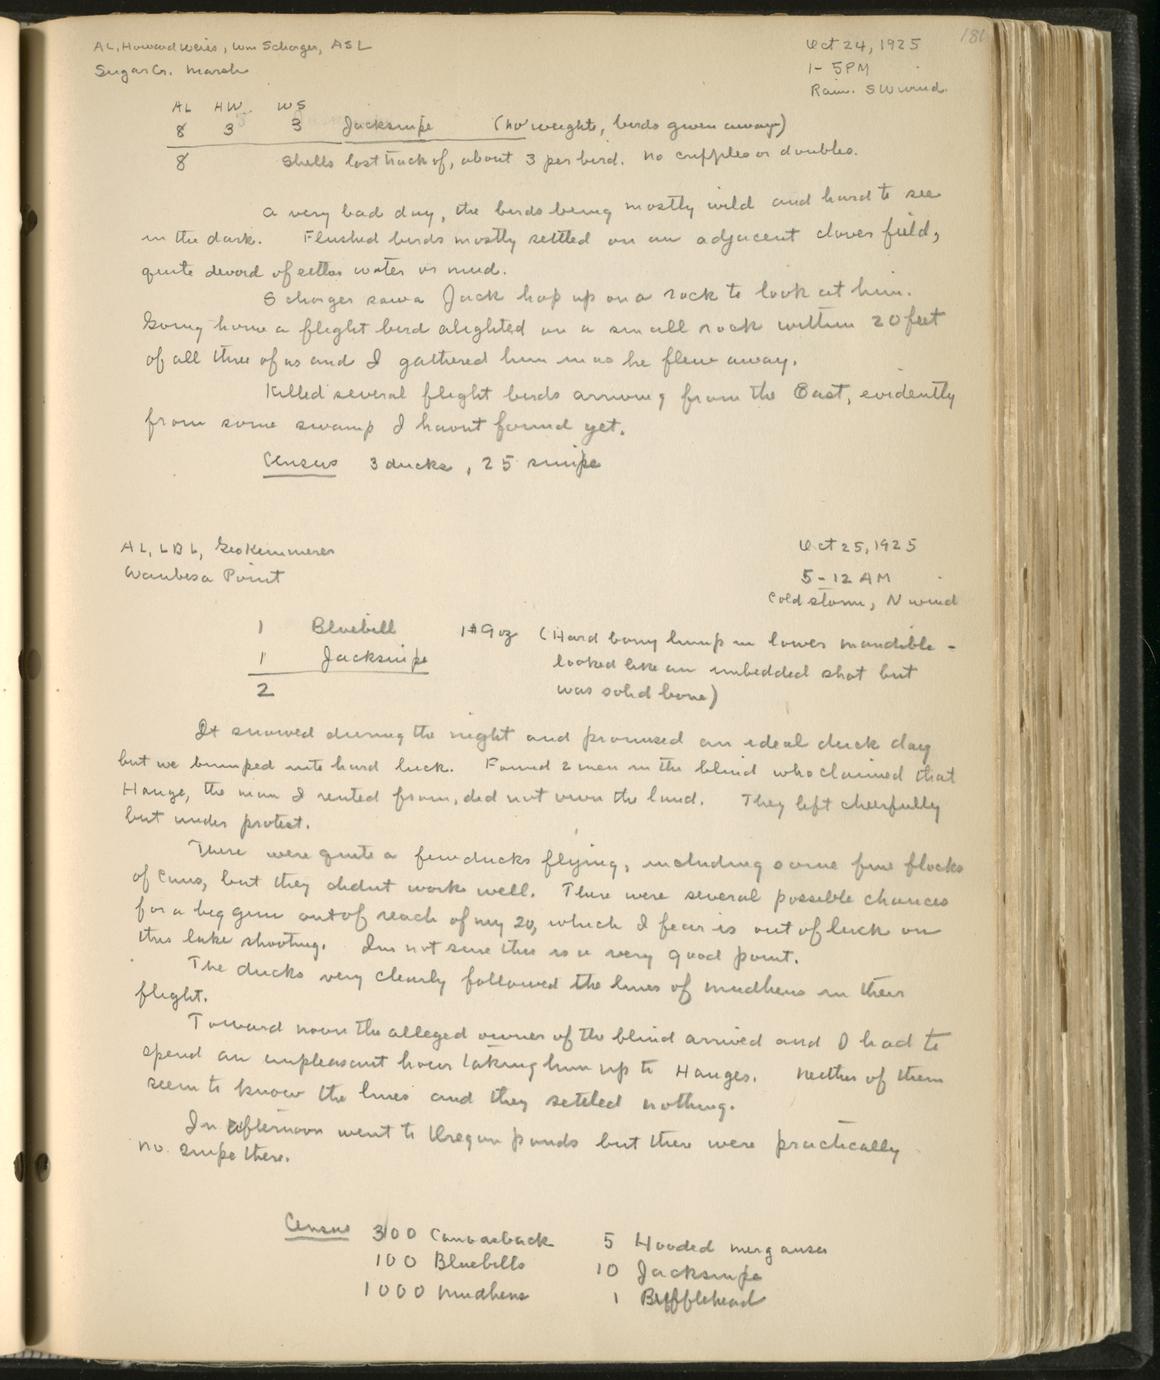 AL, Howard Weiss, Wm Schorger, ASL
Oct 24, 1925
181
Sugar Cr. Marsh
1-5PM
Rain. SW wind.
AL HW WS
8 3 3 Jacksnipe (no weights, birds given away)
8 Shells lost track of, about 3 per bird. No cripples or doubles.
A very bad day, the birds being mostly wild and hard to see
in the dark. Flushed birds mostly settled on an adjacent clover field,
quite devoid of either water or mud.
Schorger saw a Jack hop up on a rock to look at him.
Going home a flight bird alighted on a small rock within 20 feet
of all three of us and I gathered him in as he flew away.
Killed several flight birds arriving from the East, evidently
from some swamp I havnt found yet.
Census 3 ducks, 25 snipe
AL, LBL, Geo Kemmerer
Oct 25, 1925
Waubesa Point
5-12 AM
Cold storm, N wind
1 Bluebill 1# 9oz (Hard bony lump in lower mandible -
1 Jacksnipe looked like an imbedded shot but
2 was solid bone)
It snowed during the night and promised an ideal duck day
but we bumped into hard luck. Found 2 men in the blind who claimed that
Hauge, the man I rented from, did not own the land. They left cheerfully
but under protest.
There were quite a few ducks flying, including some fine flocks
of Cans, but they didnt work well. There were several possible chances
for a big gun out of reach of my 20, which I fear is out of luck on
this lake shooting. Im not sure this is a very good point.
The ducks very clearly followed the lines of mudhens in their
flight.
Toward noon the alleged owner of the blind arrived and I had to
spend an unpleasant hour taking him up to Hauges. Neither of them
seem to know the lines and they settled nothing.
In afternoon went to Oregon ponds but there were practically
no snipe there.
Census 300 Canvasback 5 Hooded merganser
100 Bluebills 10 Jacksnipe
1000 Mudhens 1 Bufflehead